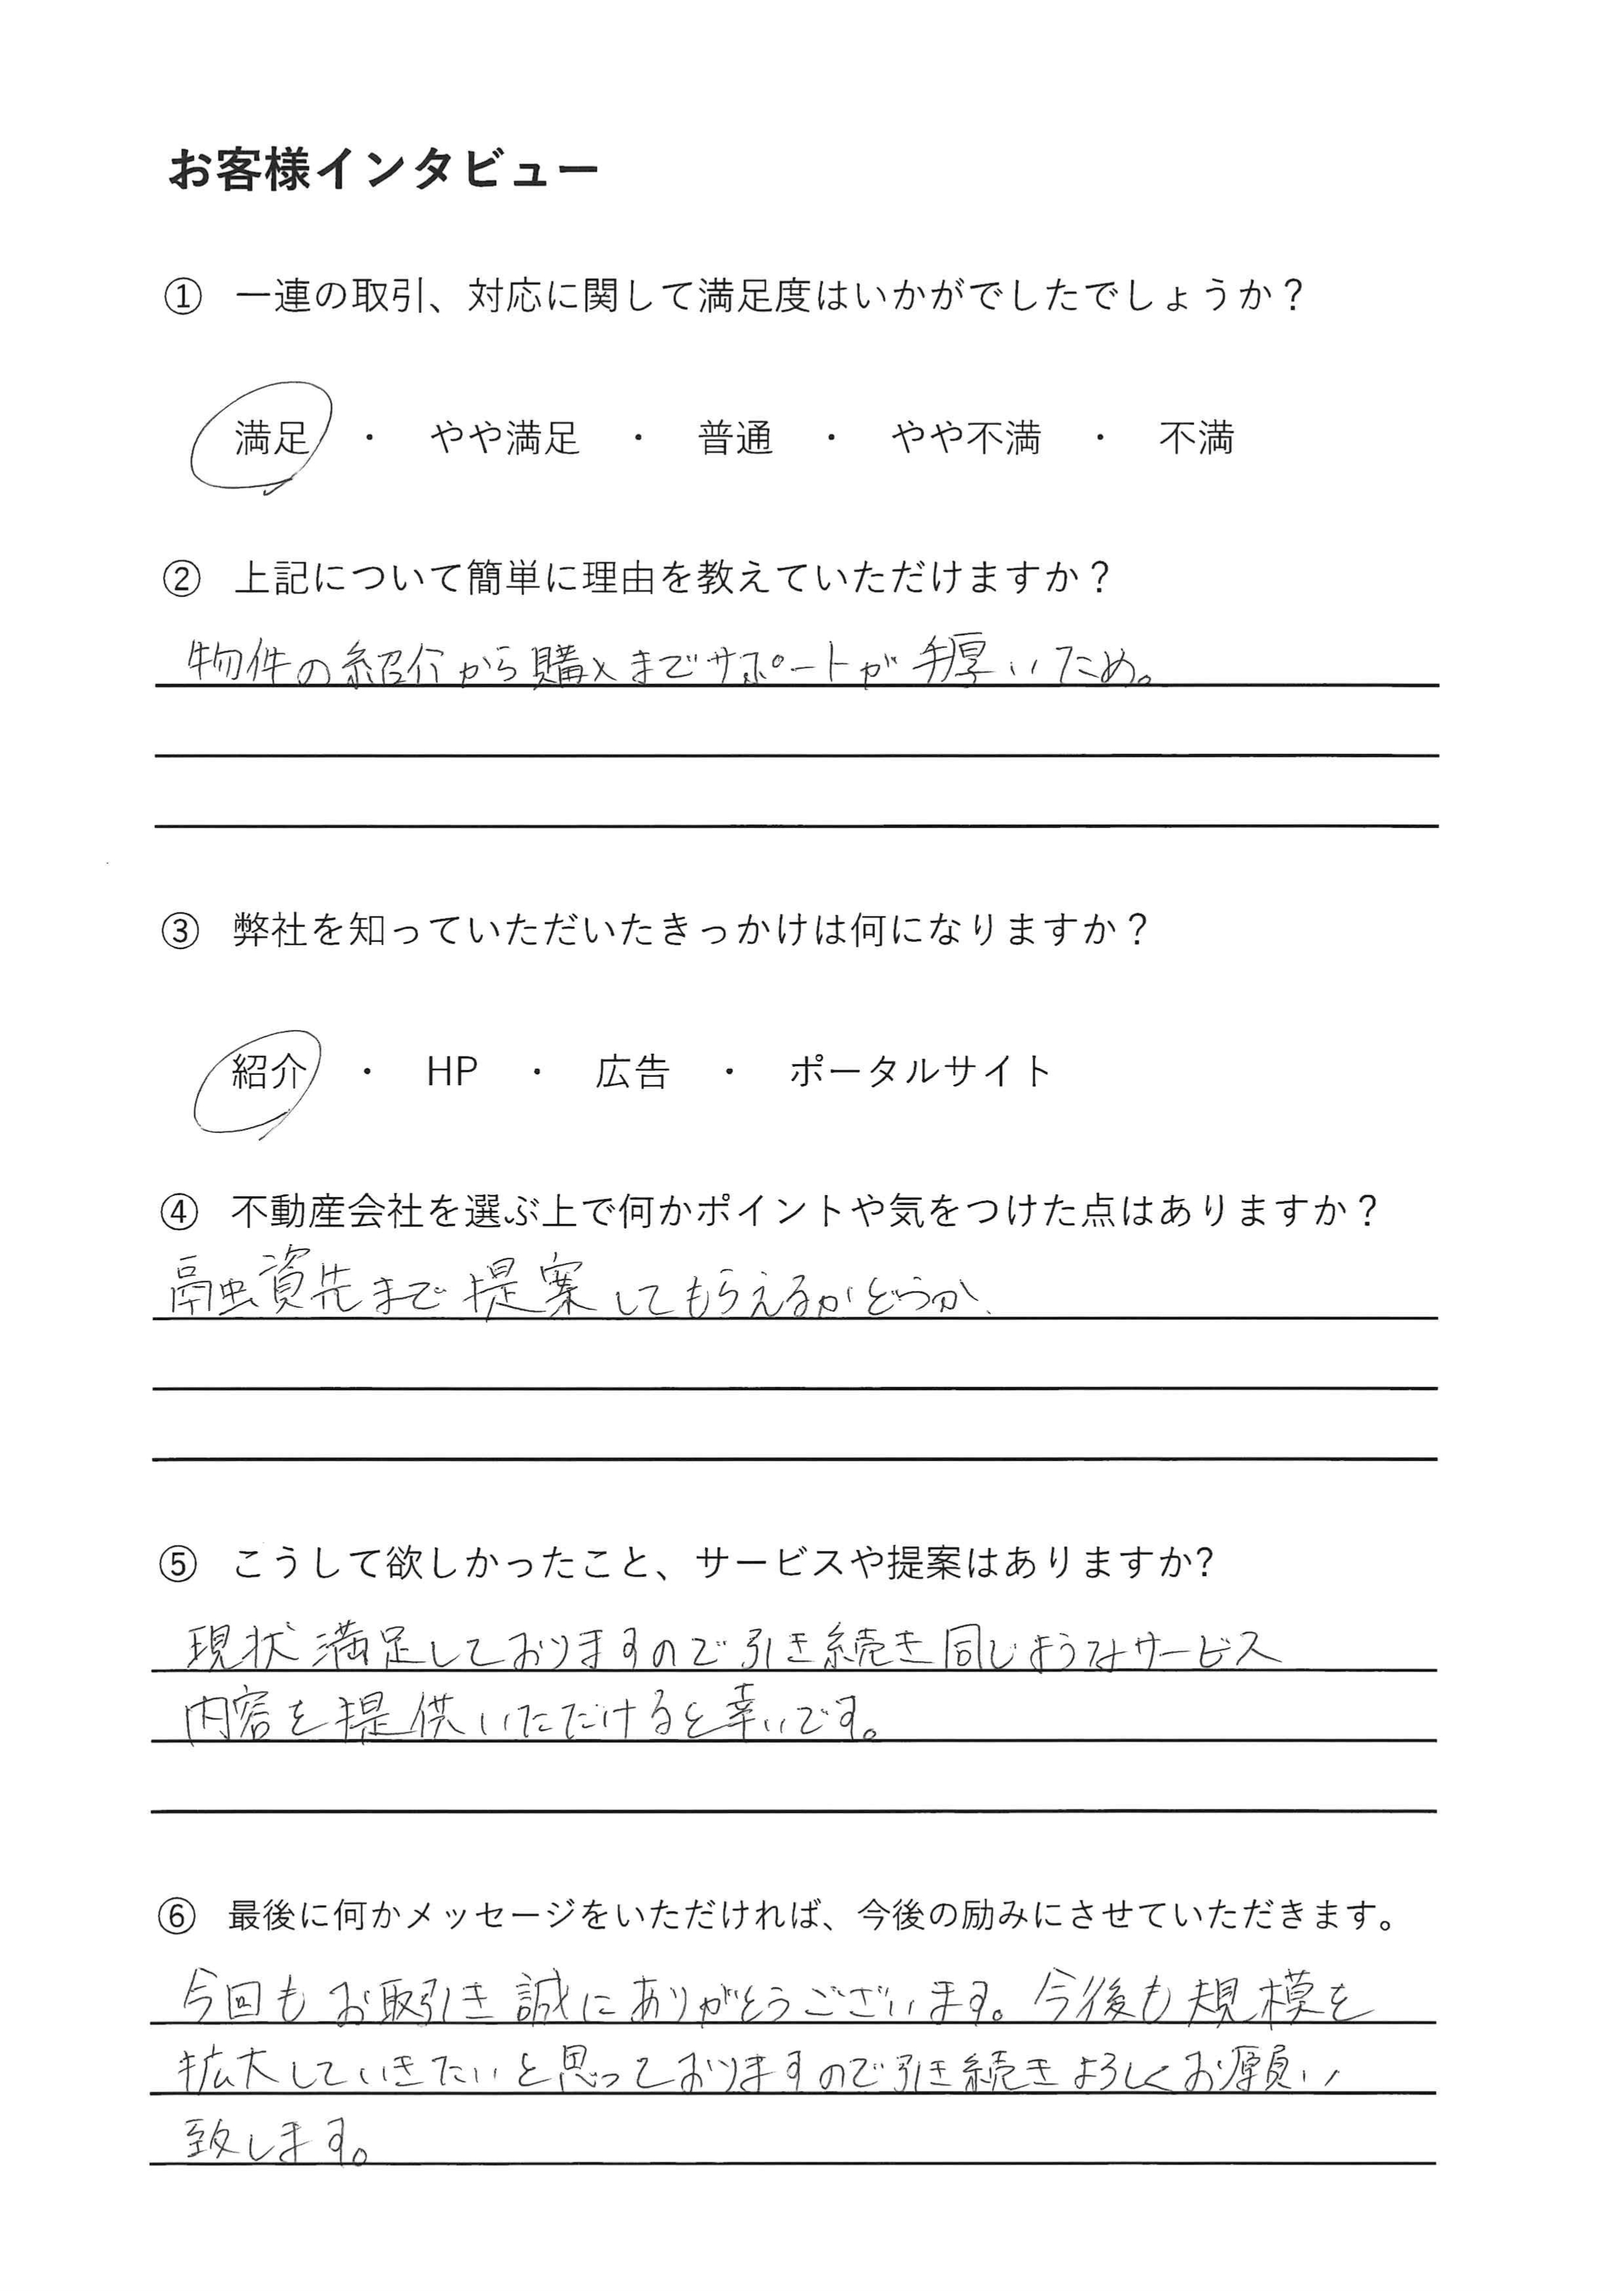 お客様インタビュー
① 一連の取引、対応に関して満足度はいかがでしたでしょうか？
満足 ・ やや満足 ・ 普通 ・ やや不満 ・ 不満
② 上記について簡単に理由を教えていただけますか？
物件の紹介から購入までサポートが手厚いため。
③ 弊社を知っていただいたきっかけは何になりますか？
紹介 ・ HP ・ 広告 ・ ポータルサイト
④ 不動産会社を選ぶ上で何かポイントや気をつけた点はありますか？
融資先まで提案してもらえるかどうか、
⑤ こうして欲しかったこと、サービスや提案はありますか?
現状満足しておりますので引き続き同じようなサービス
内容を提供いただけると幸いです。
⑥ 最後に何かメッセージをいただければ、今後の励みにさせていただきます。
今回もお取引き誠にありがとうございます。今後も規模を
拡大していきたいと思っておりますので引き続きよろしくお願い
致します。